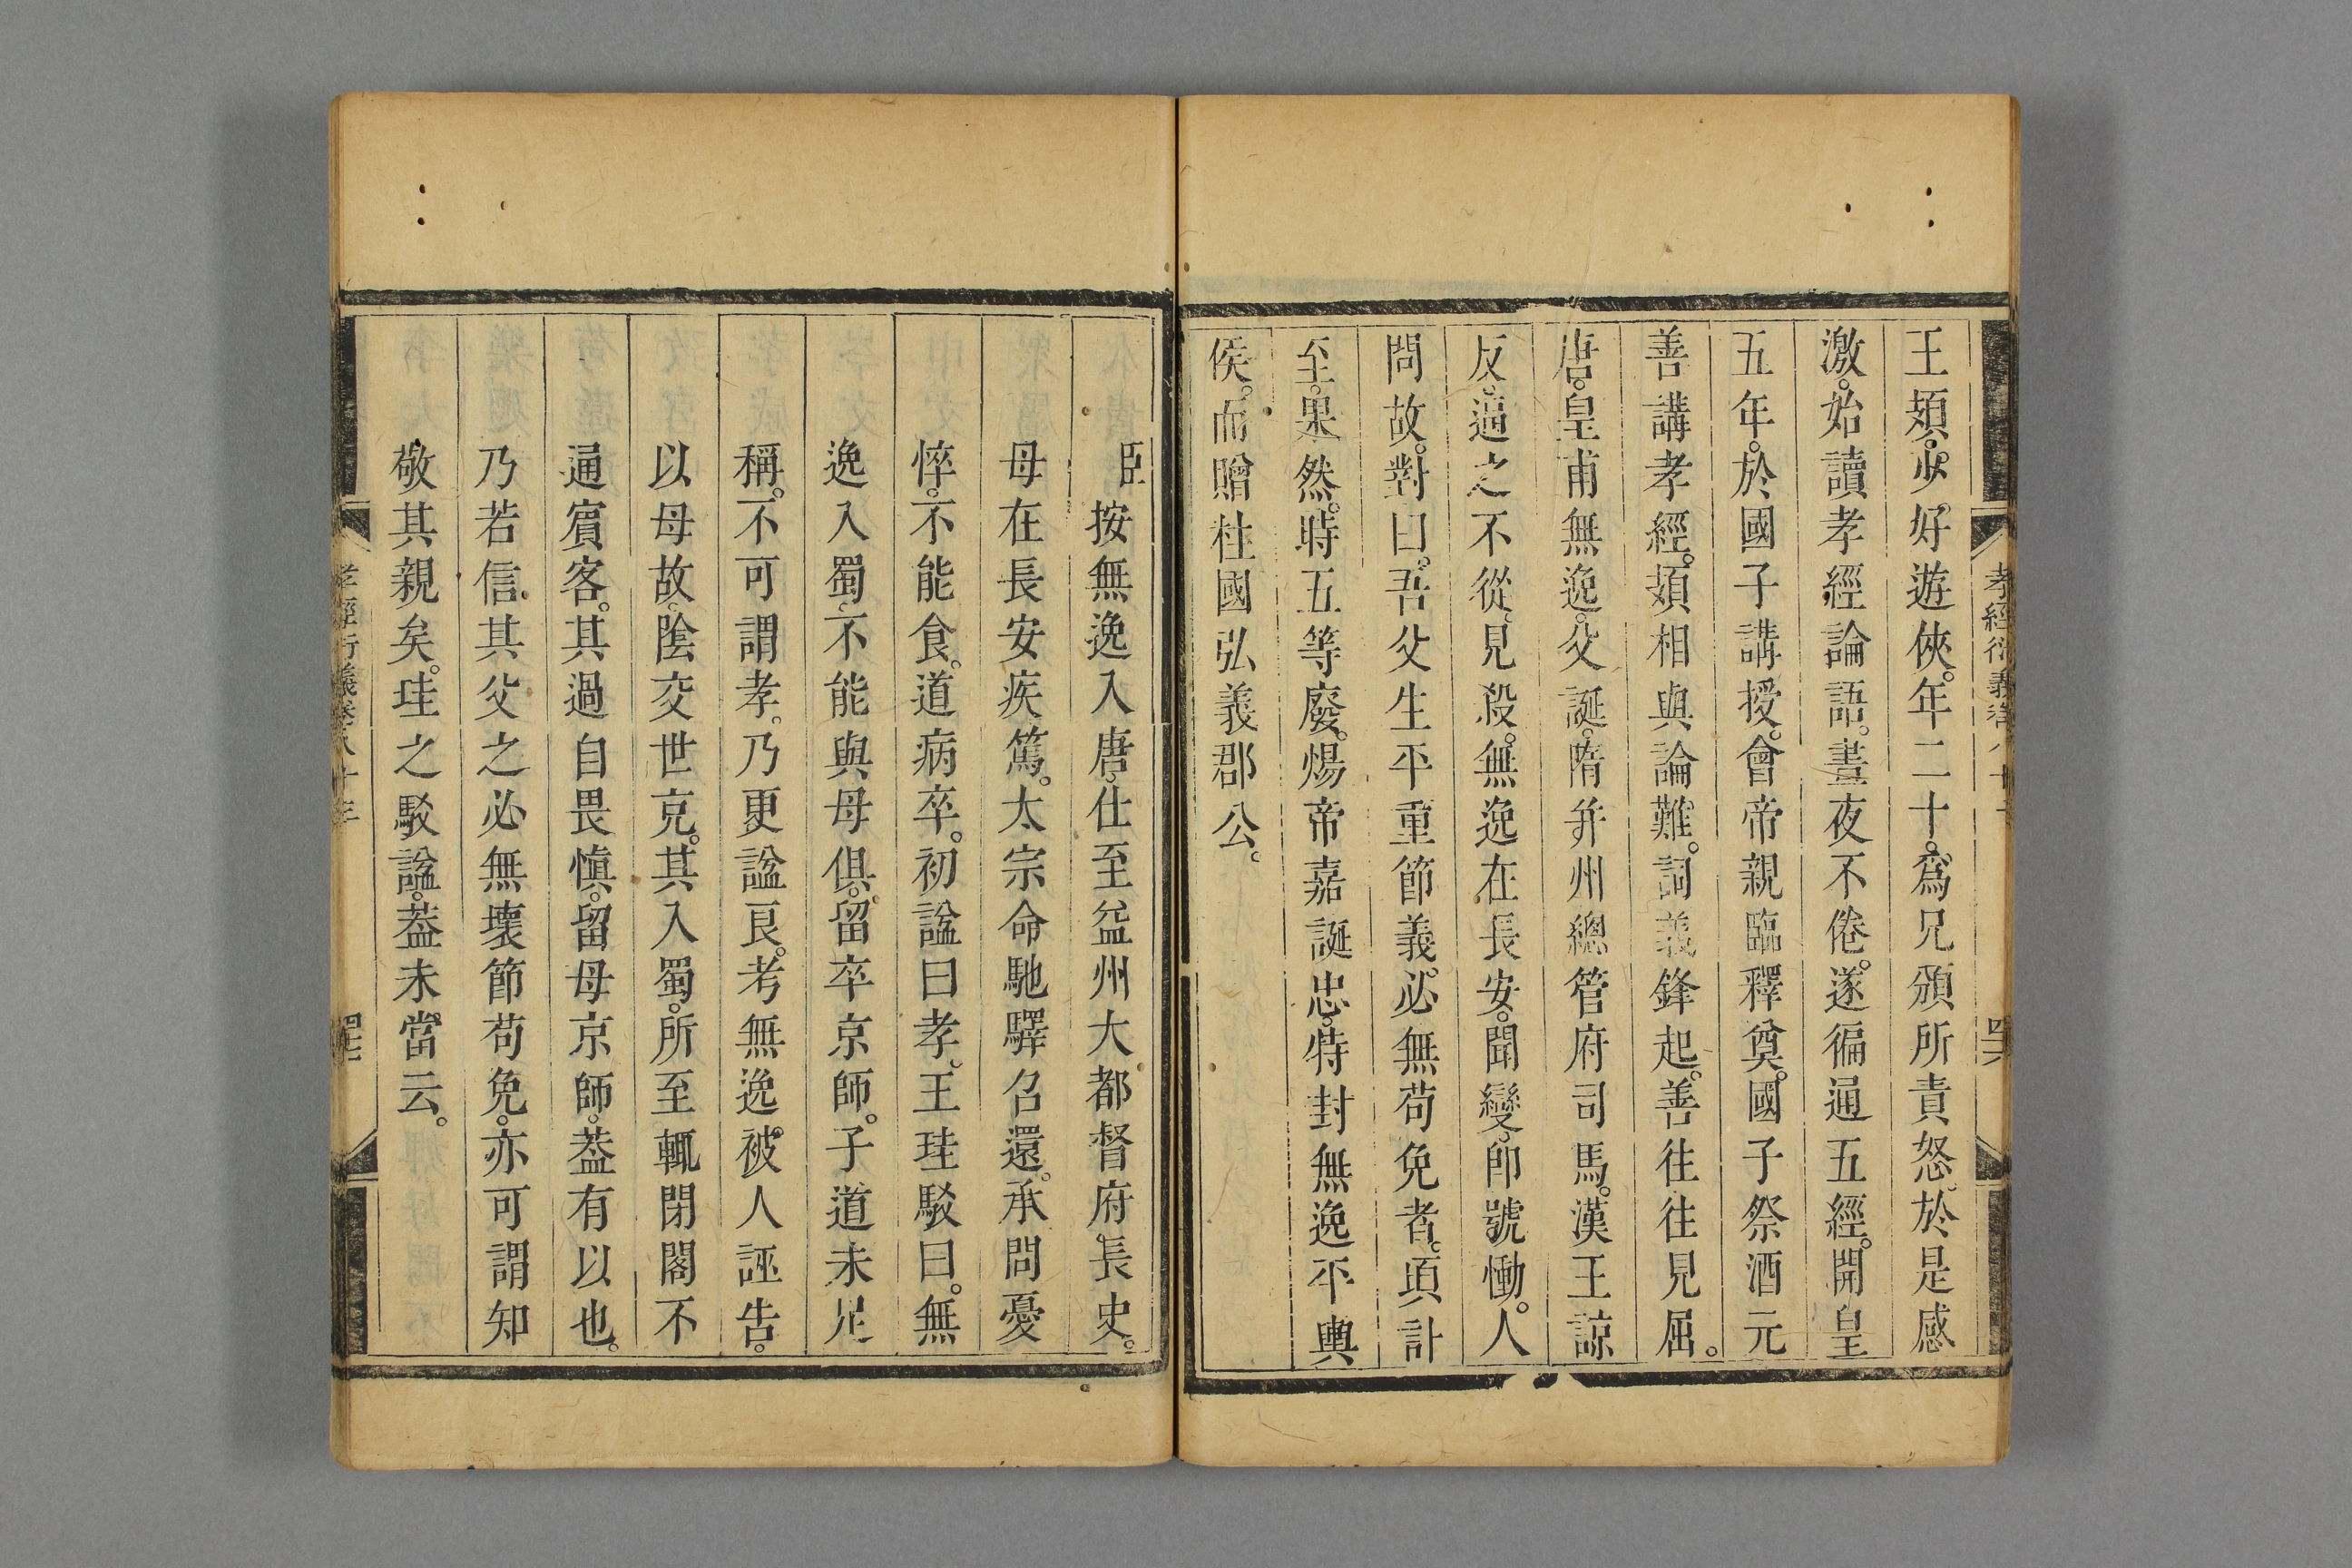 王頍。少。好遊俠。年二十。爲兄頒所責怒。於是感
激。始讀孝經論語。晝夜不倦。遂徧通五經。開皇
五年。於國子講授。會帝親臨釋奠。國子祭酒元
善講孝經。頍相與論難。詞義鋒起。善往往見屈。
唐。皇甫無逸。父誕。隋幷州總管府司馬。漢王諒
反。逼之不從。見殺。無逸在長安。聞變。卽號慟。人
問故。對曰。吾父生平重節義。必無苟免者。頃計
至。果然。時五等廢。煬帝嘉誕忠。特封無逸平輿
侯。而贈柱國弘義郡公。
臣按無逸入唐。仕至益州大都督府長史。
母在長安疾篤。太宗命馳驛召還。承問憂
悴。不能食。道病卒。初諡曰孝。王珪駁曰。無
逸入蜀。不能與母俱。留卒京師。子道未足
稱。不可謂孝。乃更諡良。考無逸。被人誣告。
以母故。陰交世充。其入蜀。所至輒閉閣不
通賓客。其過自畏愼。留母京師。葢有以也。
乃若信其父之必無壞節苟免。亦可謂知
敬其親矣。珪之駁諡。葢未當云。
孝經衍義卷八十